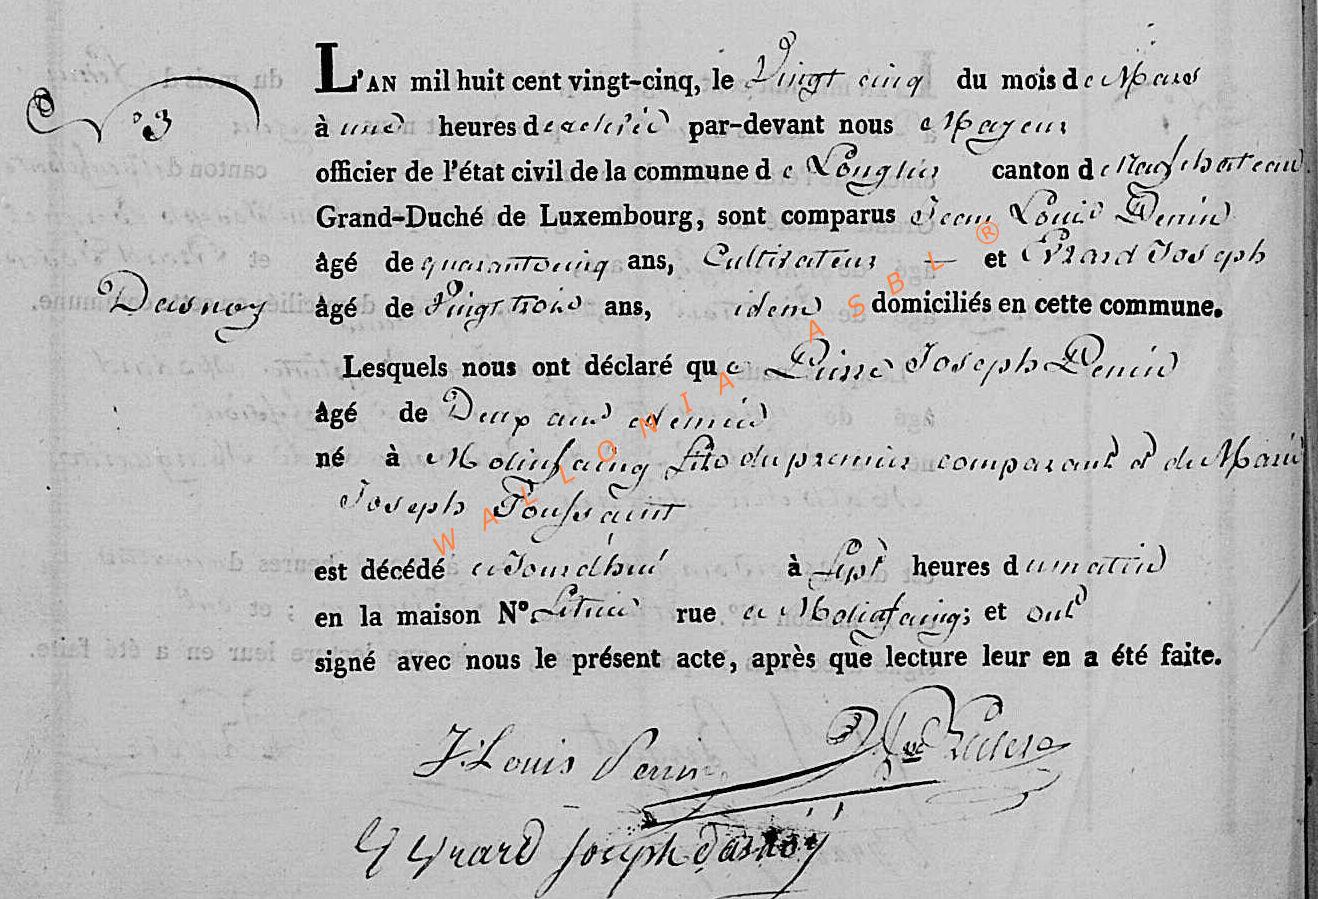 L'AN mil huit cent vingt-cinq, le Vingt cinq du mois de Mars
à une heures de relevée par-devant nous Mayeur
officier de l'état civil de la commune de Longlier canton de Neufchateau
Grand-Duché de Luxembourg, sont comparus Jean Louis Penin
âgé de quarantecinq ans, Cultivateur — et Gerard Joseph
Dasnoy âgé de Vingt trois ans, idem domiciliés en cette commune.
Lesquels nous ont déclaré que Pierre Joseph Penin
âgé de Deux ans et demie
né à Molinfaing fils du premier comparant et de Marie
Joseph Toussaint
est décédé à Sept heures du matin
en la maison N°. rue a Molinfaing; et ont
signé avec nous le présent acte, après que lecture leur en a été faite.
J. Louis Penin
Gerard Joseph dasnoy
WALLONIA ASBL ®